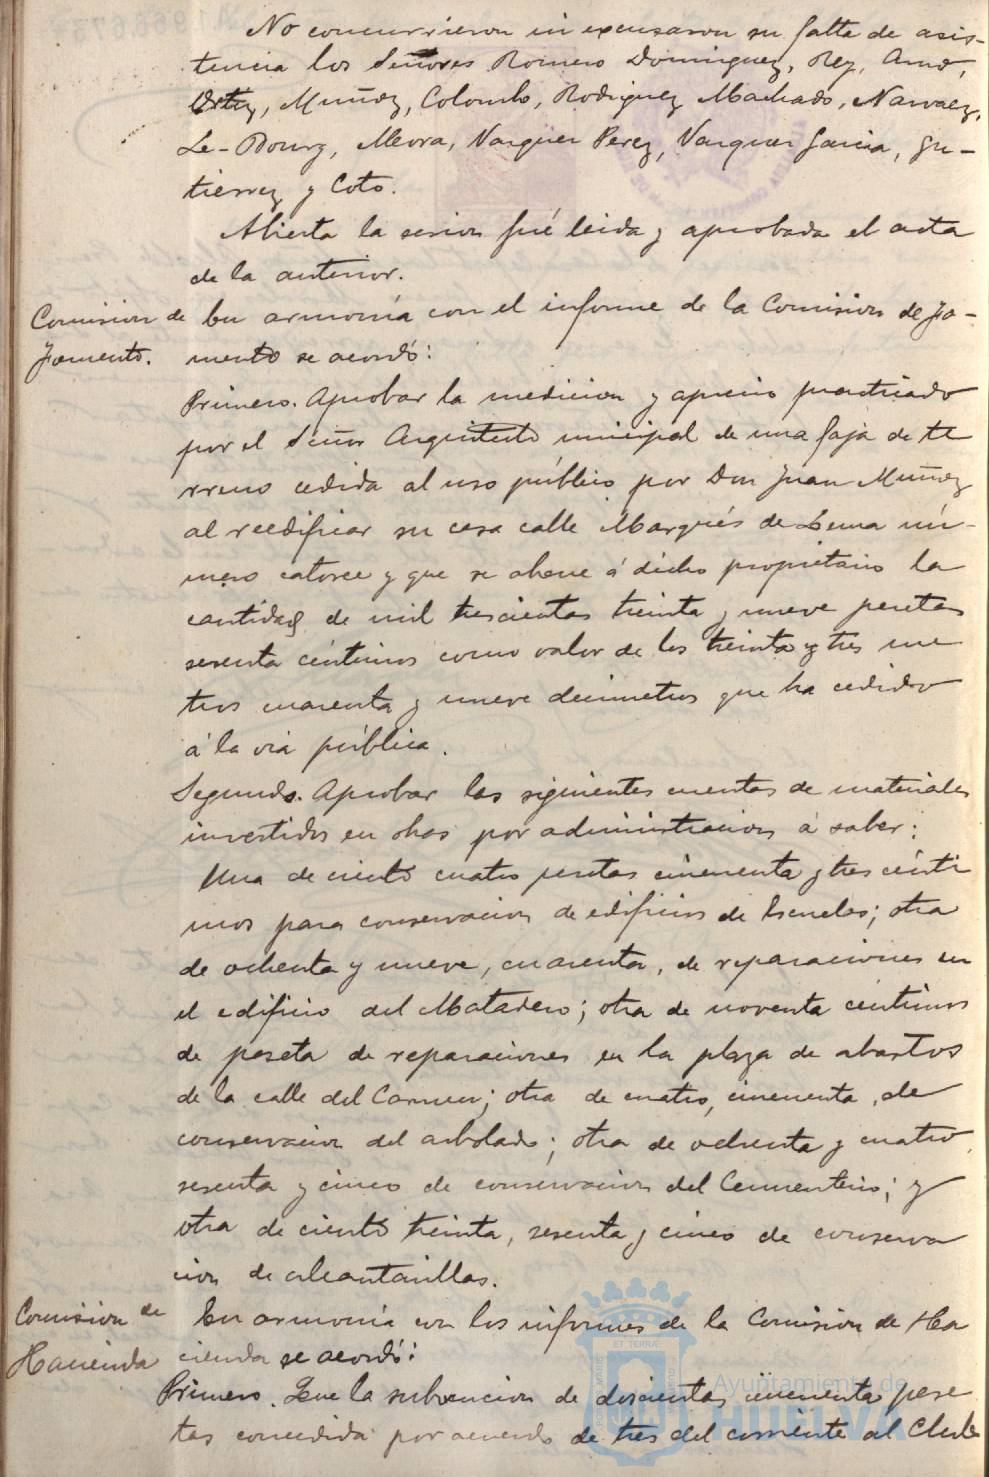 No concurrieron ni excusaron su falta de asis-
tencia los Señores Romero Dominguez, Rey,
Ortiz, Muñoz, Colombo, Rodriguez Machado, Narvaez,
Le-Bourg, Mora, Vazquez Perez, Vazquez Garcia, Gu-
tierrez y Coto.
Abierta la sesion fué leida y aprobada el acta
de la anterior.
Comision de
Fomento.
En armonía con el informe de la Comision de Fo-
mento se acordó:
Primero. Aprobar la medicion y aprecio practicado
por el Señor Arquitecto municipal de una faja de te
rreno cedida al uso público por Don Juan Muñoz
al reedificar su casa calle Marqués de Lema nú-
mero catorce y que se abone á dicho propietario la
cantidad de mil trescientas treinta y nueve pesetas
sesenta céntimos como valor de los treinta y tres me
tros cuarenta y nueve decimetros que ha cedido
á la via pública.
Segundo. Aprobar las siguientes cuentas de materiales
invertidos en obras por administracion á saber:
Una de ciento cuatro pesetas cincuenta y tres cénti
mos para conservacion de edificios de Escuelas; otra
de ochenta y nueve, cuarenta, de reparaciones en
el edificio del Matadero; otra de noventa centimos
de peseta de reparaciones en la plaza de abastos
de la calle del Carmen; otra de cuatro, cincuenta, de
conservacion del arbolado; otra de ochenta y cuatro,
sesenta y cinco de conservacion del Cementerio; y
otra de ciento treinta, sesenta y cinco de conserva
cion de alcantarillas.
Comision de
Hacienda
En armonía con los informes de la Comision de Ha
cienda se acordó:
Primero. Que la subvencion de doscientas cincuenta pese
tas concedida por acuerdo de tres del corriente al Club
Ayuntamiento de
HUELVA